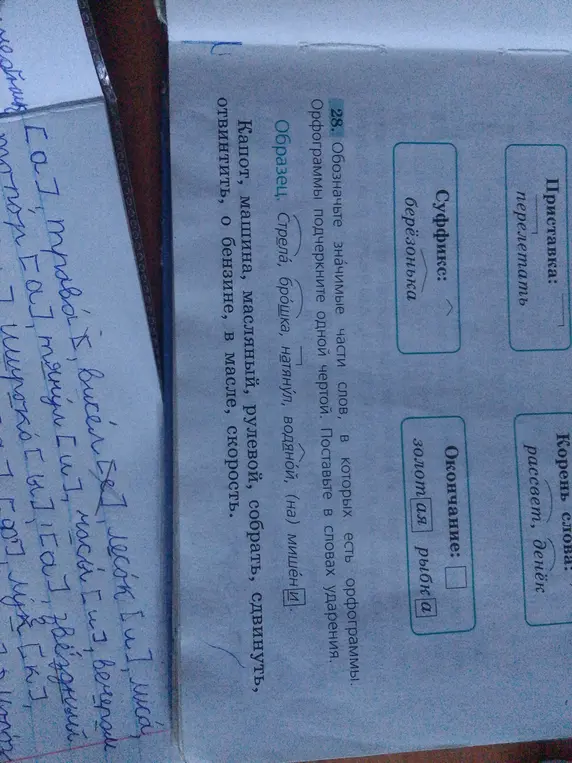 Приставка:
перелетать
Корень слова:
рассвет, денёк
Суффикс:
берёзонька
Окончание:
золотая рыбка
28. Обозначьте значимые части слов, в которых есть орфограммы.
Орфограммы подчеркните одной чертой. Поставьте в словах ударения.
Образец. Стрела́, бро́шка, натяну́л, водяно́й, (на) мише́ни.
Капот, машина, масляный, рулевой, собрать, сдвинуть,
отвинтить, о бензине, в масле, скорость.
[а], трава́, висе́л [е], лесо́к [и],
[а], тяну́л [и], часы́ [и], вечера́м
широко́ [ы], [а], звёздный
[ф], лу́к [к],